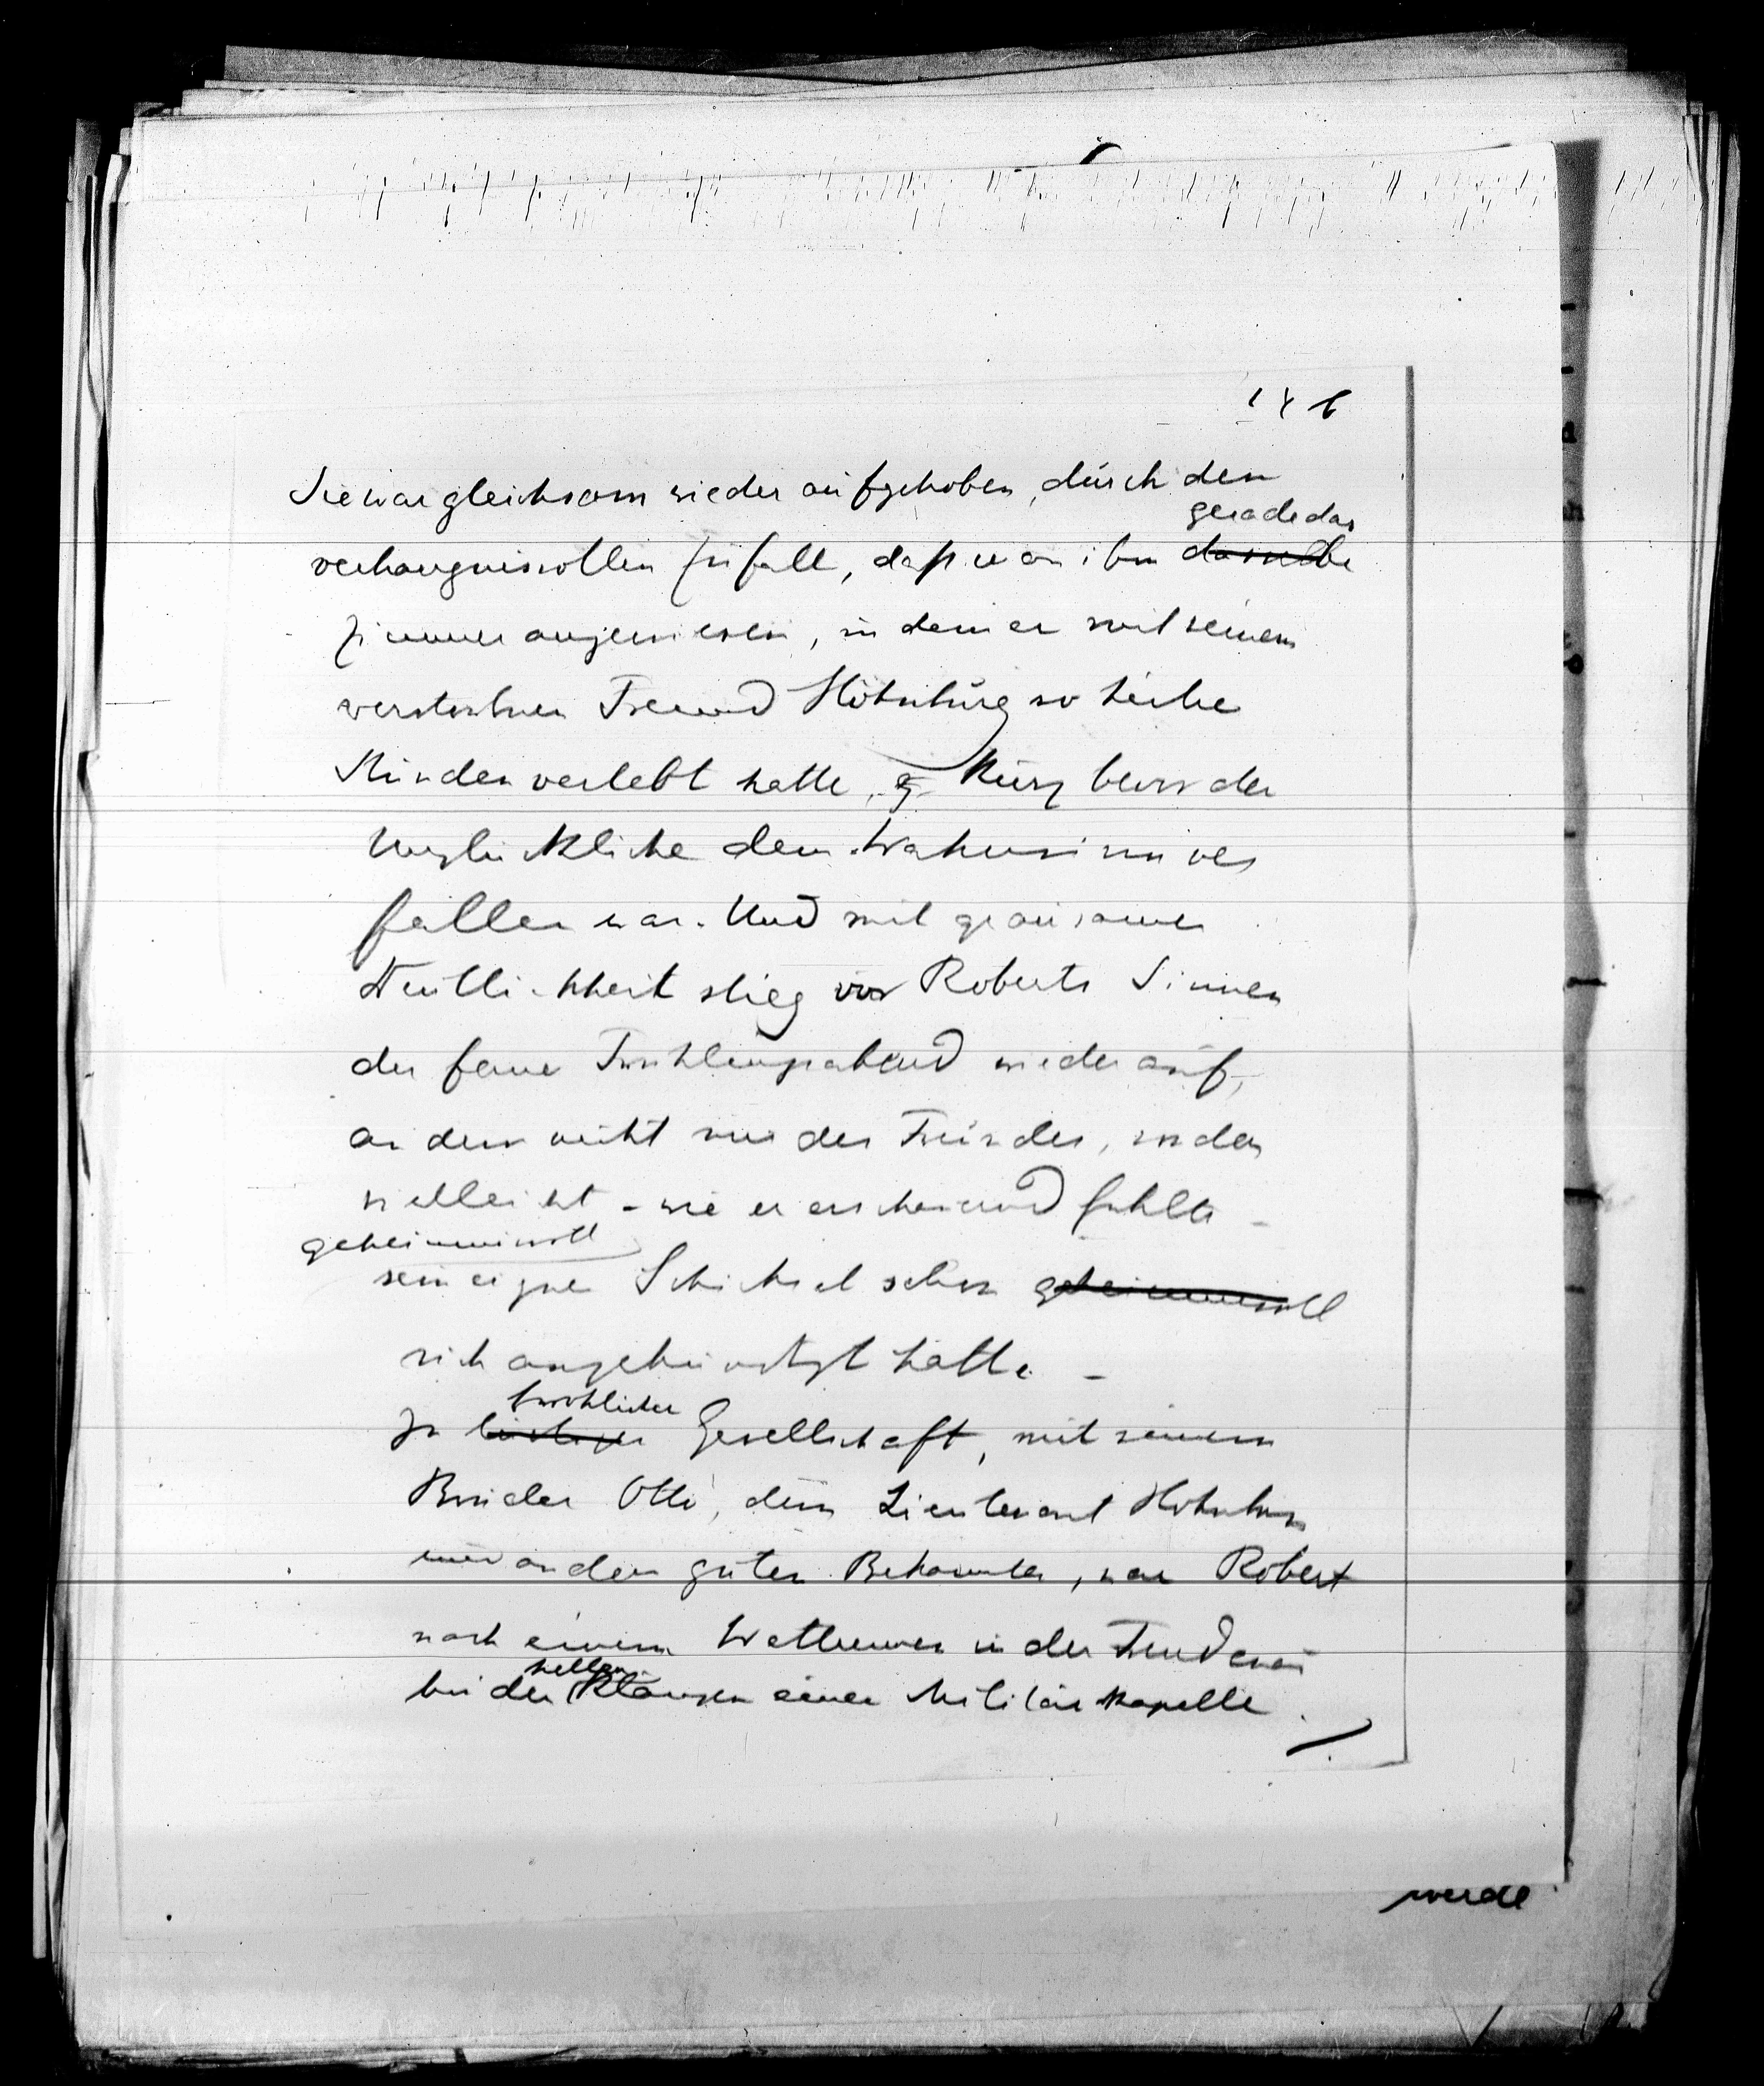 146
Sie war gleichsam wieder aufgehoben, durch den
gerade das
verhängnisvollen Zufall, daß man ihm dasselbe
Zimmer angewiesen, in dem er mit seinem
verstorbnen Freund Höhnburg so heitre
Stunden verlebt hatte, kurz bevor der
Unglückliche dem Wahnsinn ver
fallen war. Und mit grausamer
Deutlichkeit stieg vor Roberts Sinnen
der ferne Frühlingsabend wieder auf,
an dem nicht nur des Freundes, sondern
vielleicht - wie er erschauernd fühlte -
geheimnisvoll
sein eignes Schicksal schon geheimnisvoll
sich angekündigt hatte. -
fröhlicher
In lustiger Gesellschaft, mit seinem
Bruder Otto, dem Lieutenant Höhnburg
und andern guten Bekannten, war Robert
nach einem Wettrennen in der Freudenau
hellen
bei den Klängen einer Militärkapelle
wurde